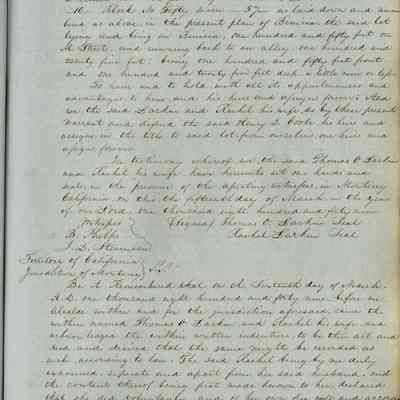 10. Block No Fifty seven - 57 as laid down and num
bered as above, in the present plan of Benicia the said lot
lying and being in Benicia, one hundred and fifty feet on
M Street, and running back to an alley one hundred and
twenty five feet: being one hundred and fifty feet front
and one hundred and twenty five feet deep a little more or less
To have and to hold with all its appurtenances and
advantages to him, and his heirs and assigns forever. And
we the said Larkin and Rachel his wife, do by these presents
warrant and defend the said Henry D. Cooke his heirs and
assigns, in the title to said lot from ourselves, our heirs and
assigns forever
In testimony whereof we, the said Thomas O. Larkin
and Rachel his wife have hereunto set our hands and
seals, in the presence of the attesting witnesses, in Monterey
California on this the fifteenth day of March in the year
of our Lord, one thousand eight hundred and forty nine
Witness (Signed) Thomas O. Larkin Seal
B. Phelps Rachel Larkin Seal
J. D. Stevenson
Territory of California
Jurisdiction of Monterey SS.
Be it Remembered that on the day of March
A.D. one thousand eight hundred and forty nine, before me
Alcalde within and for the jurisdiction aforesaid, came the
within named Thomas O. Larkin and Rachel his wife and
acknowledged the within written indenture to be their act and
deed and desired that the same might be recorded as
such, according to law. The said Rachel being by me duly
examined, separate and apart from her said husband, and
the contents thereof being first made known to her declared
that she did voluntarily and of her own free will and accord